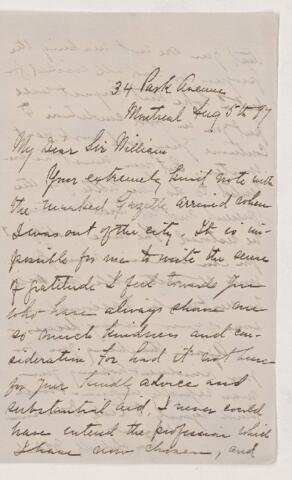 34 Park Avenue
Montreal Aug 5th 97
My Dear Sir William
Your extremely kind note with
the marked Gazette arrived when
I was out of the city. It is im-
possible for me to write the sense
of gratitude I feel towards you
who have always shown me
so much kindness and con-
sideration for had it not been
for your kindly advice and
substantial aid, I never could
have entered the profession which
I have now chosen, and